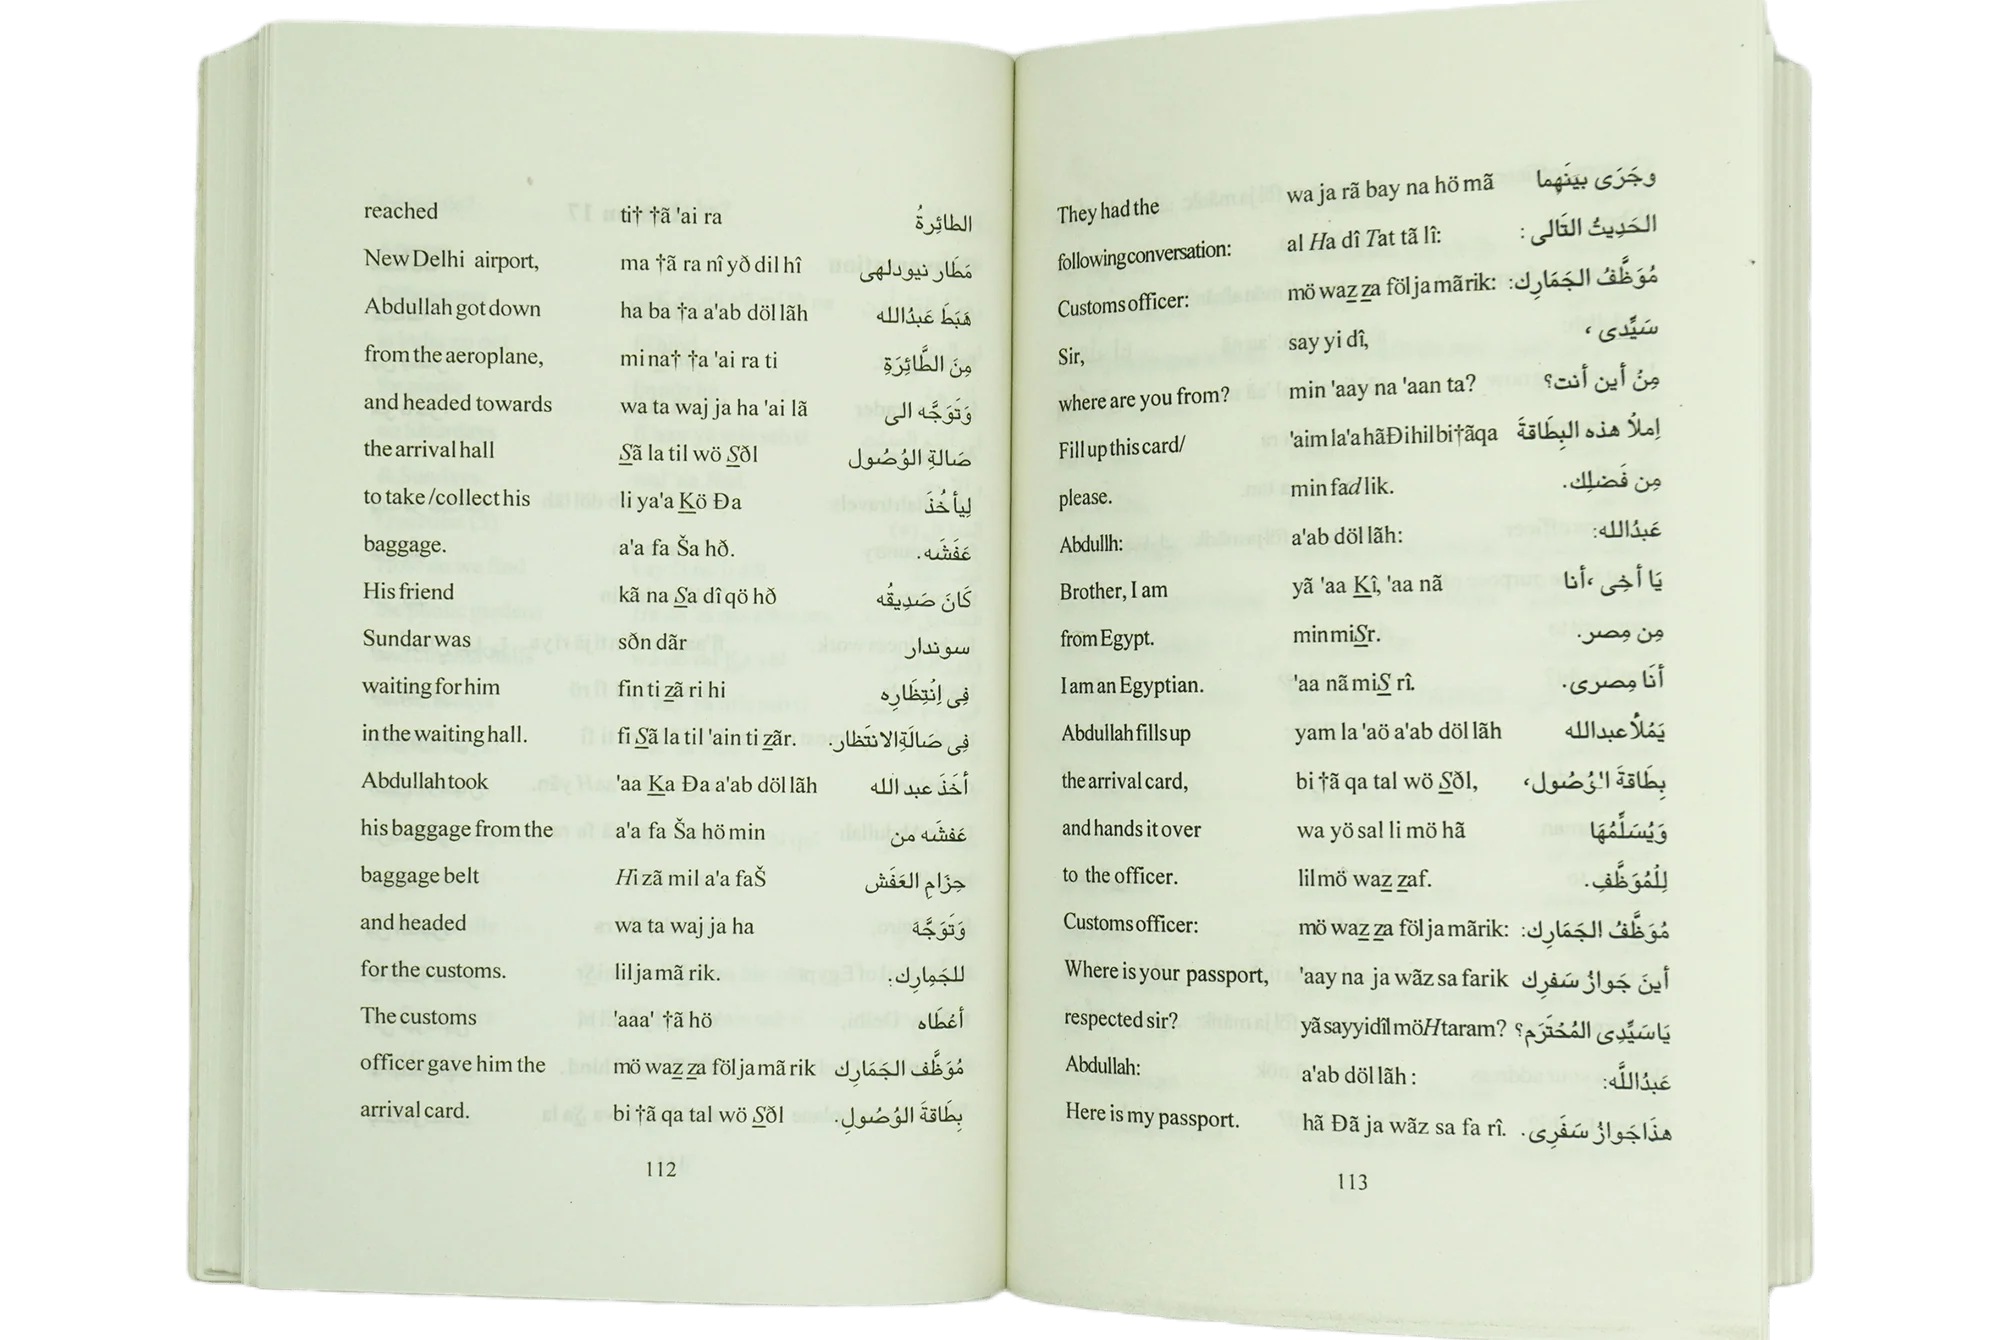 reached ti† †ã 'ai ra الطائِرةُ
New Delhi airport, ma †ã ra nî yð dil hî مَطَار نيودلهى
Abdullah got down ha ba †a a'ab döl lãh هَبَطَ عَبدُالله
from the aeroplane, mi na† †a 'ai ra ti مِنَ الطَّائِرَةِ
and headed towards wa ta waj ja ha 'ai lã وَتَوَجَّه الى
the arrival hall Sã la til wö Sðl صَالةِ الوُصُول
to take /collect his li ya'a Kö Ða لِيأخُذَ
baggage. a'a fa Ša hð. عَفَشَه.
His friend kã na Sa dî qö hð كَانَ صَدِيقُه
Sundar was sðn dãr سوندار
waiting for him fin ti zã ri hi فِى اِنتِظَارِه
in the waiting hall. fi Sã la til 'ain ti zãr. فِى صَالَةِالانتَظار.
Abdullah took 'aa Ka Ða a'ab döl lãh أخَذَ عبد الله
his baggage from the a'a fa Ša hö min عَفشَه من
baggage belt Hi zã mil a'a faŠ حِزَامِ العَفَش
and headed wa ta waj ja ha وَتَوَجَّهَ
for the customs. lil ja mã rik. للجَمِارِك.
The customs 'aaa' †ã hö أعْطَاه
officer gave him the mö waz za föl ja mã rik مُوَظَّف الجَمَارِك
arrival card. bi †ã qa tal wö Sðl بِطَاقةَ الوُصُولِ.
112
They had the wa ja rã bay na hö mã وجَرَى بيَنَهِما
following conversation: al Ha dî Tat tã lî: الحَدِيثُ التَالى :
Customs officer: mö waz za föl ja mã rik: مُوَظَّفُ الجَمَارِك:
Sir, say yi dî, سَيِّدى ،
where are you from? min 'aay na 'aan ta? مِنْ أين أنت؟
Fill up this card/ 'aim la'a hã Ði hil bi †ãqa اِملأ هذه البِطَاقةَ
please. min fad lik. مِن فَضلِك.
Abdullh: a'ab döl lãh: عَبدُالله:
Brother, I am yã 'aa Kî, 'aa nã يَا أخِى ،أنا
from Egypt. min miSr. مِن مِصر.
I am an Egyptian. 'aa nã miS rî. أنَا مِصرى.
Abdullah fills up yam la 'aö a'ab döl lãh يَمْلأُ عبدالله
the arrival card, bi †ã qa tal wö Sðl, بِطَاقةَ الوُصُول،
and hands it over wa yö sal li mö hã وَيُسَلِّمُهَا
to the officer. lil mö waz zaf. لِلْمُوَظَّفِ.
Customs officer: mö waz za föl ja mãrik: مُوَظَّفُ الجَمَارِك:
Where is your passport, 'aay na ja wãz sa farik أينَ جَوازُ سَفرِك
respected sir? yã sayyidîl möHtaram? يَاسَيِّدِى المُحْتَرَم؟
Abdullah: a'ab döl lãh : عَبدُاللَّه:
Here is my passport. hã Ðã ja wãz sa fa rî. هذَاجَوازُ سَفَرِى.
113